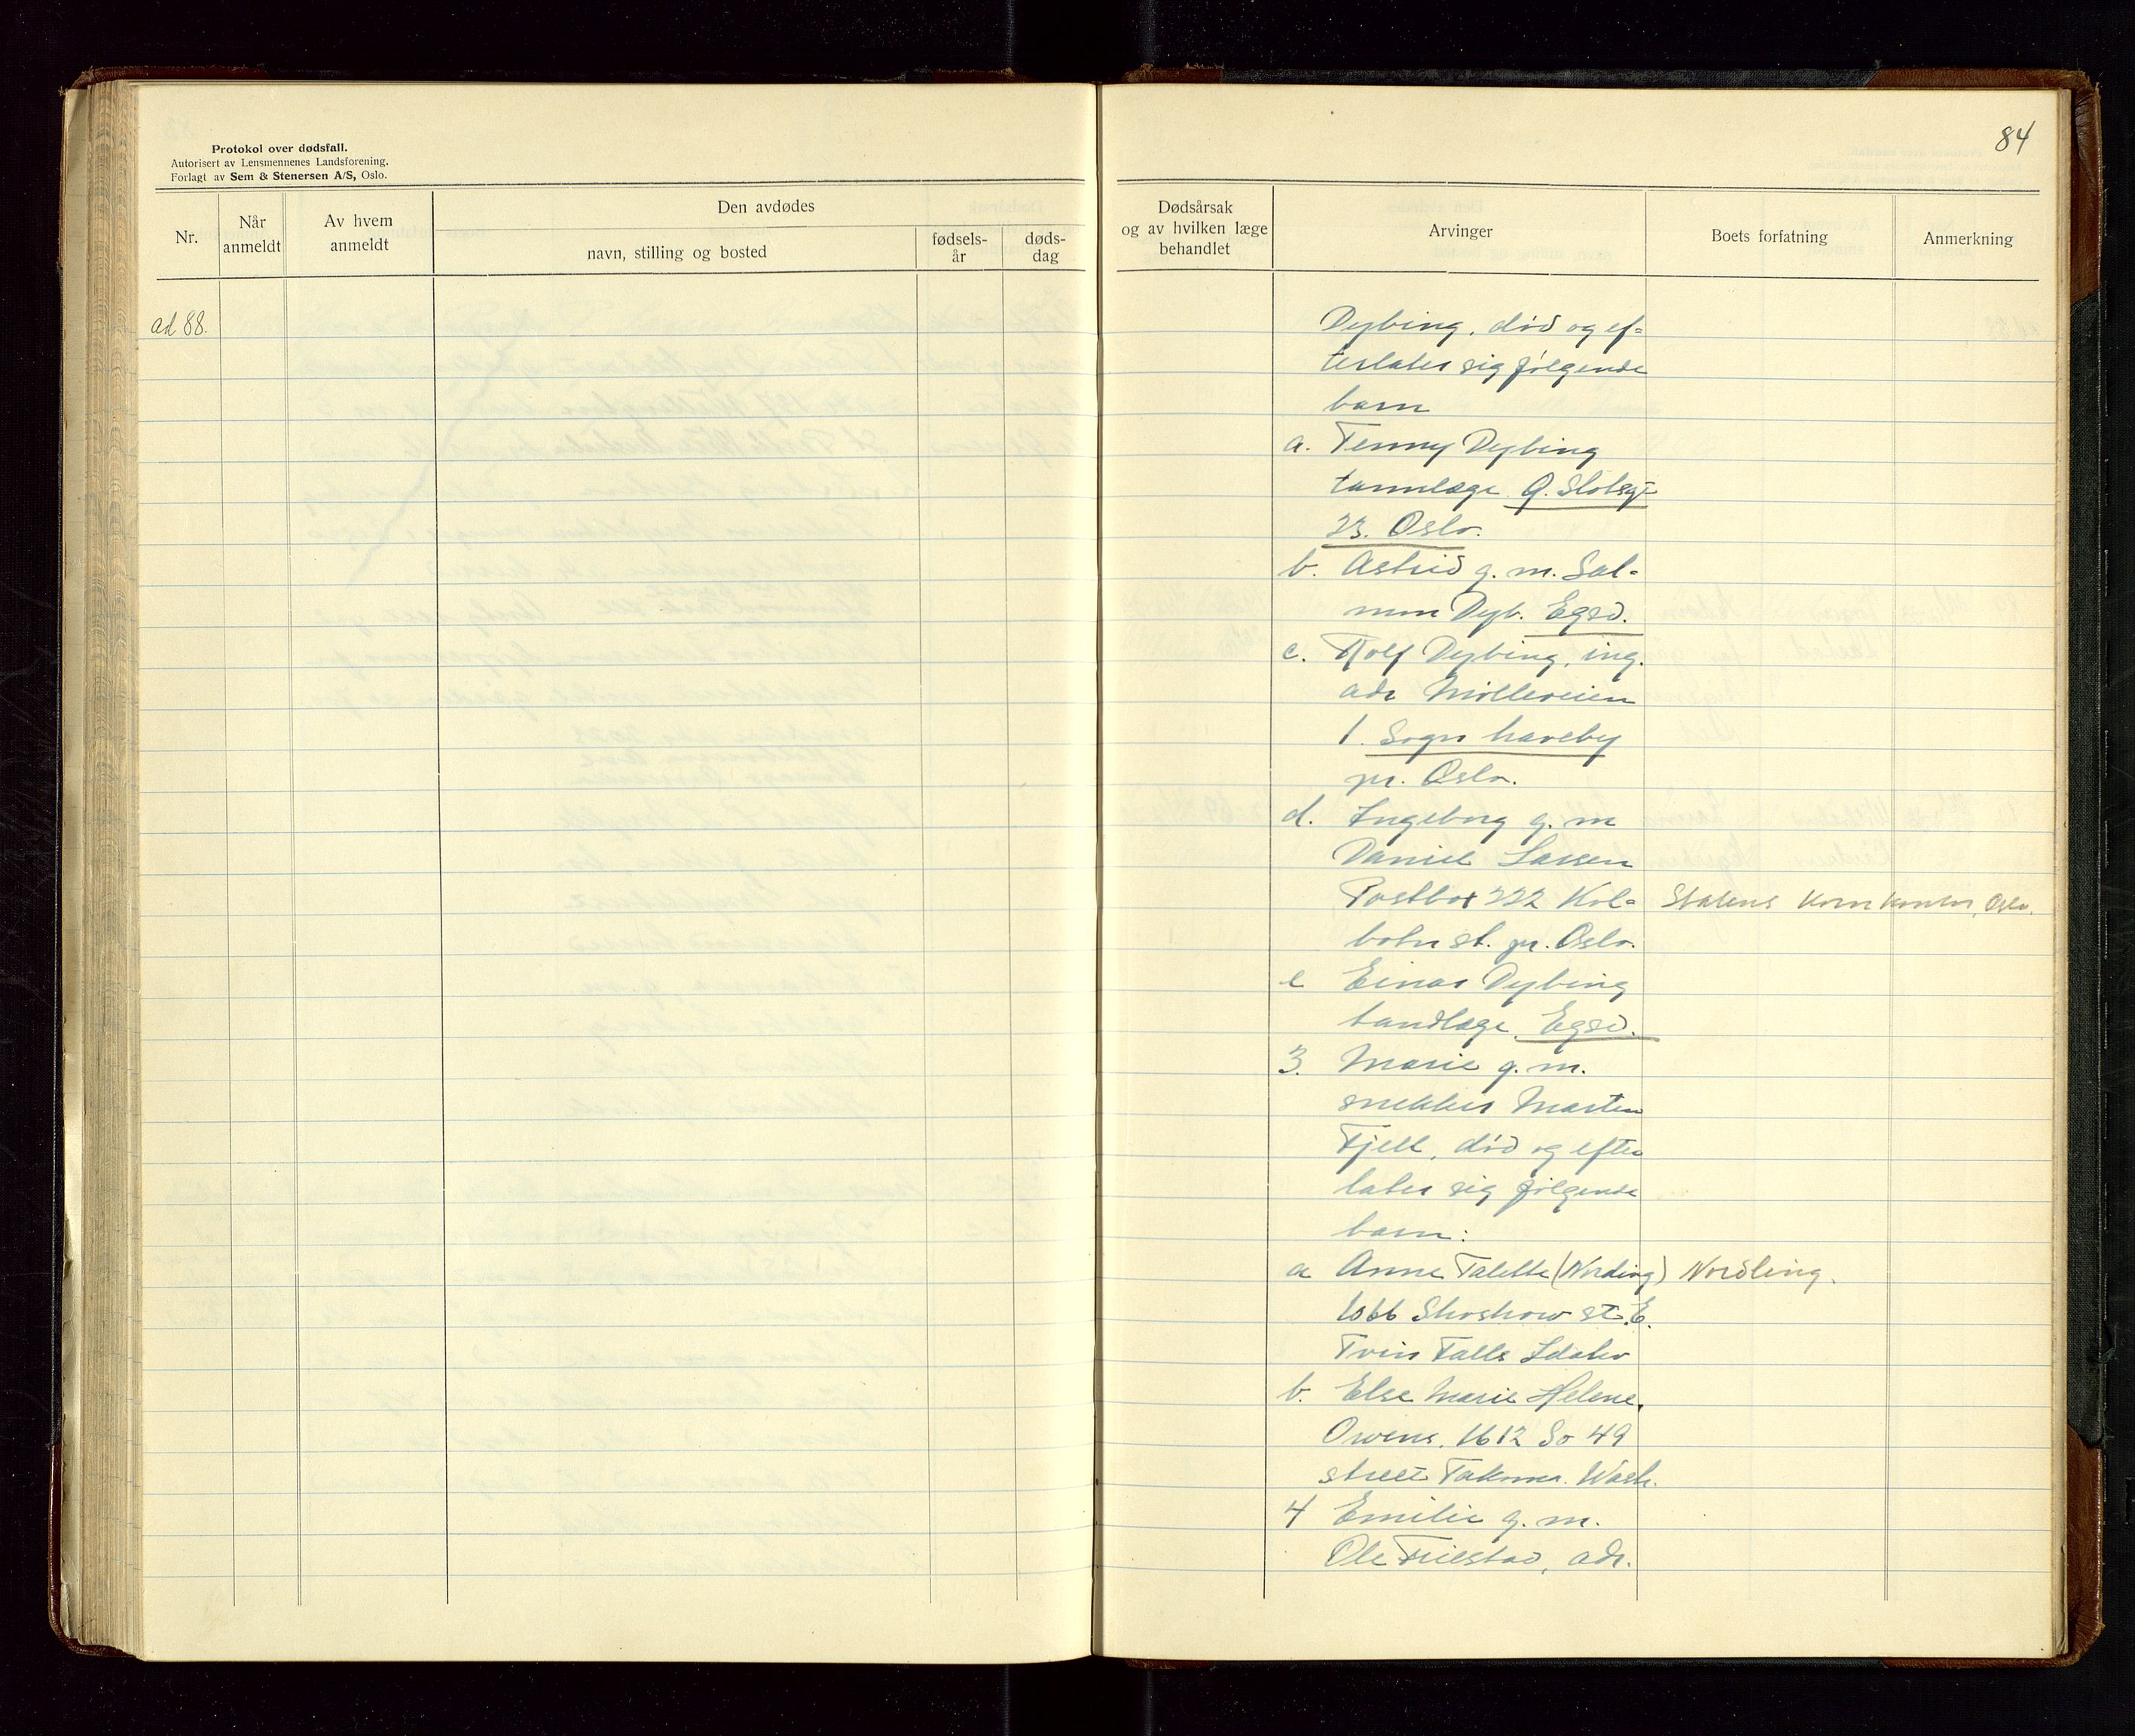 Protokol over dødsfall.
Autorisert av Lensmennenes Landsforening.
Forlagt av Sem & Stenersen A/S, Oslo.
Nr.
Når
anmeldt
Av hvem
anmeldt
Den avdødes
navn, stilling og bosted
fødsels-
år
døds-
dag
ad 88.
84
Dødsårsak
og av hvilken læge
behandlet
Arvinger
Boets forfatning
Anmerkning
Dybing, død og ef-
terlater sig følgende
barn
a. Tenny Dybing
tannlæge. Q. Slotsgt
23. Oslo.
b. Astrid g. m. Sal-
mon Dyb. Egsd.
c. Rolf Dybing, ing.
adr Mølleveien
1. Sogn haveby
pr. Oslo.
d. Ingeborg g. m
Daniel Larsen
Postbox 222 Kol- Statens Kornkontor, Oslo.
botn st. pr. Oslo.
e Einar Dybing
tandlæge, Egsd.
3. Marie g. m.
snekker Martin
Fjell, død og efter
later sig følgende
barn:
a Anne Talette (Nording) Nordling.
1066 Shoshow st. E.
Tvin Falls Idaho
b. Else Marie Helene,
Owens, 1612 So 49
street Takoma. Wash.
4 Emilie g. m.
Ole Friestad, adr.